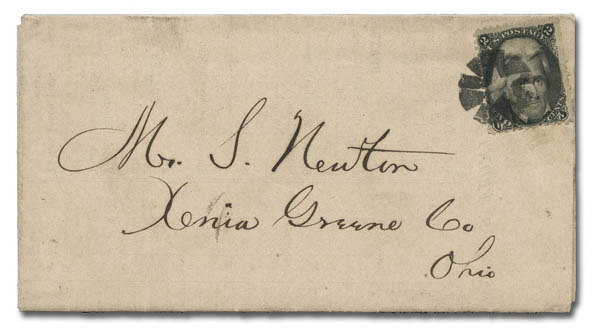 2 U.S. POSTAGE 2
Mr. S. Newton
Xenia Greene Co
Ohio